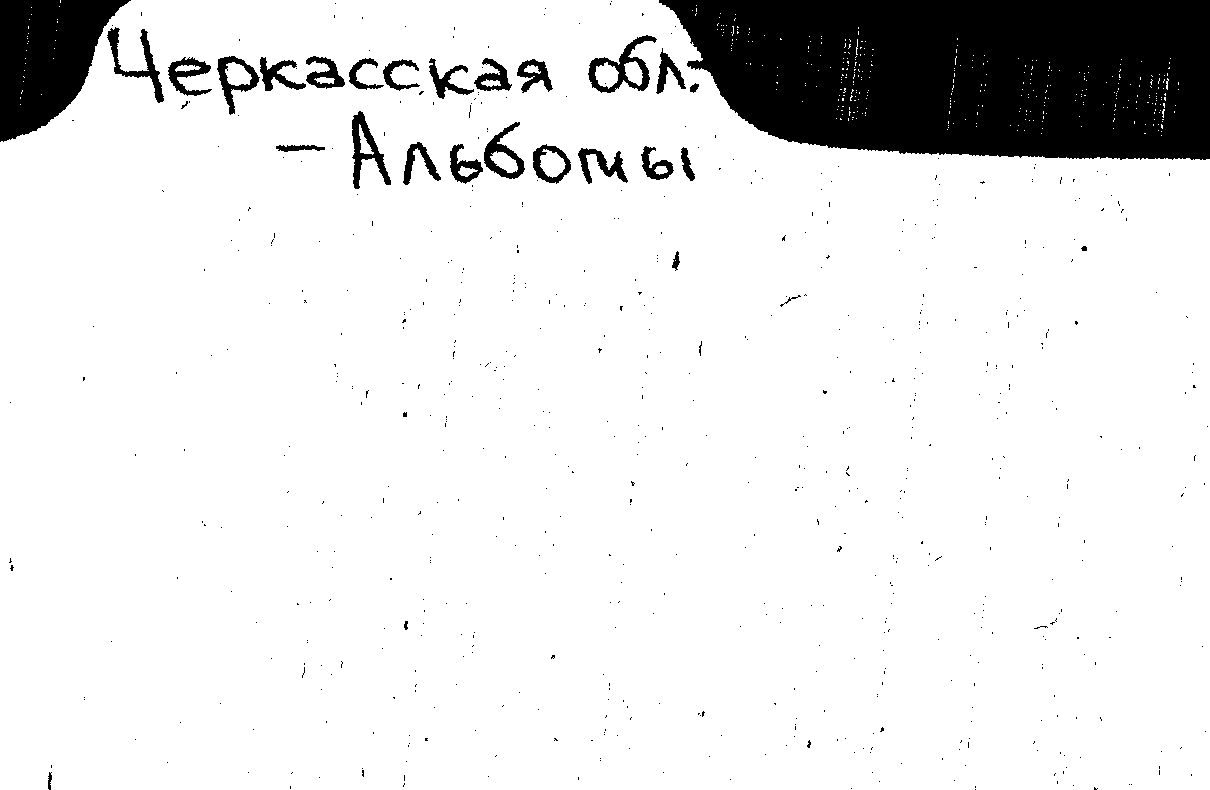 Черкасская обл.-
- Альбомы